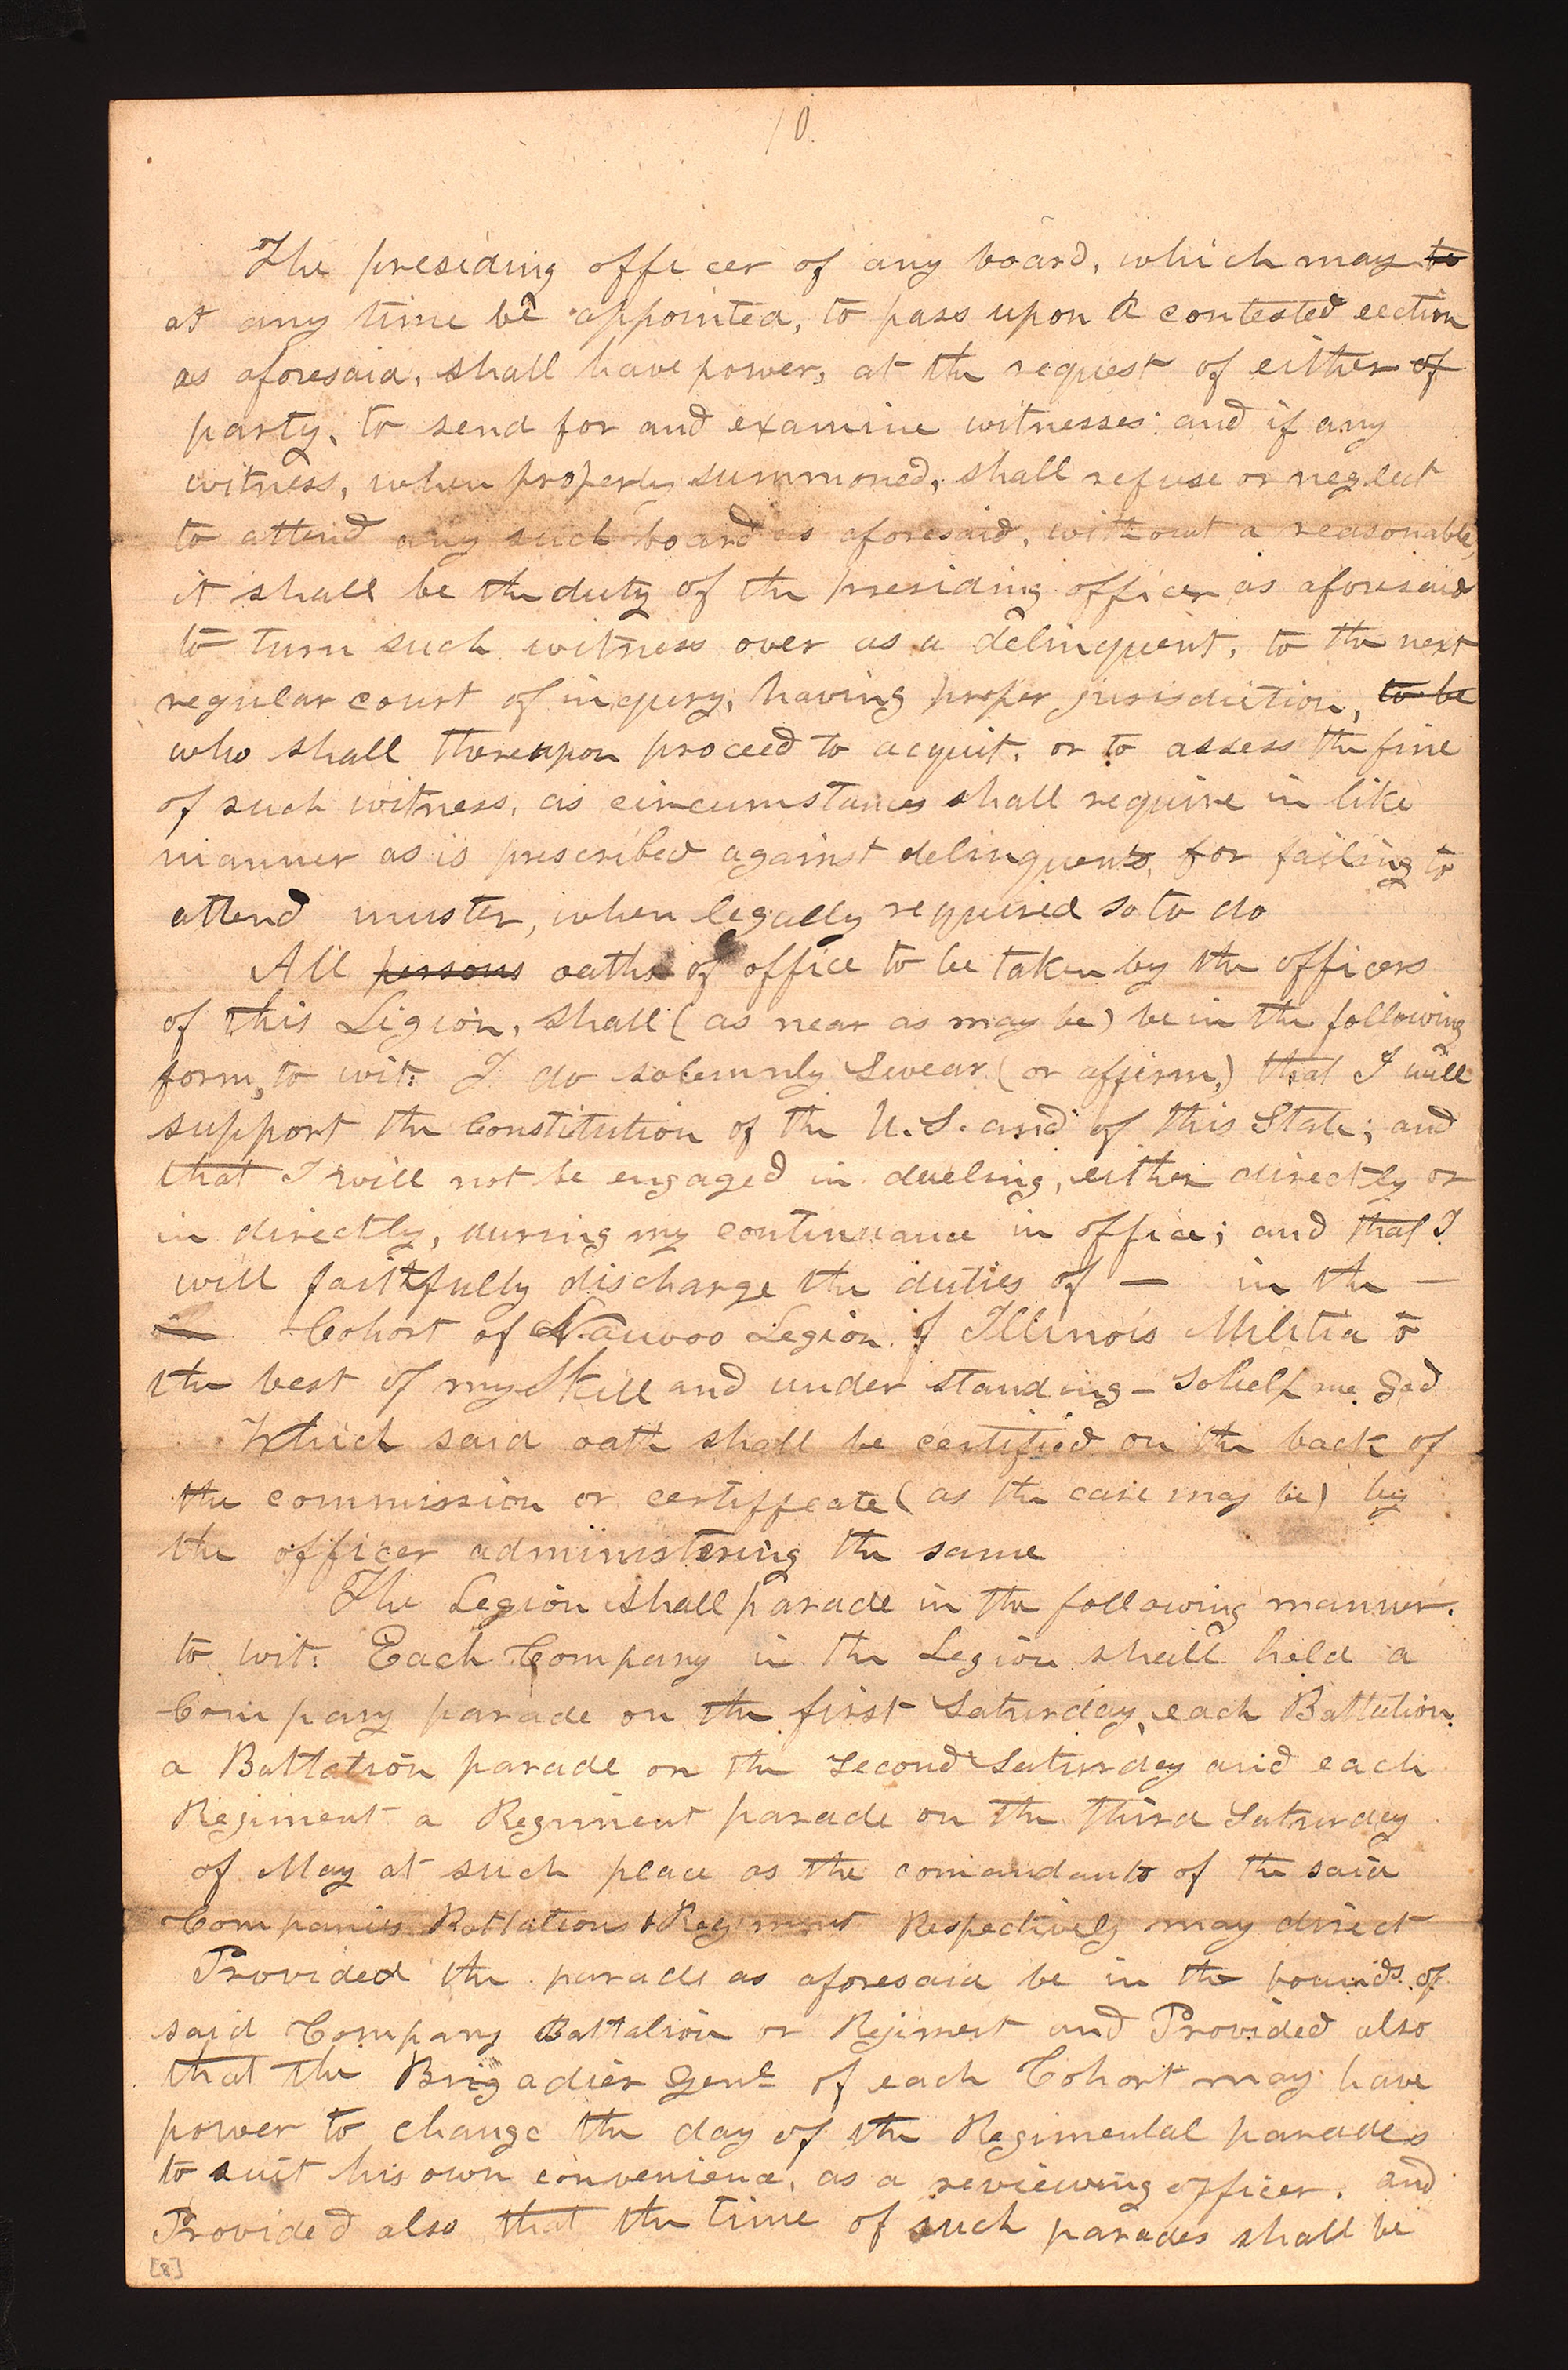 10
The presiding officer of any board, which may to
at any time be appointed, to pass upon a contested eection
as aforesaid, shall have power, at the request of either of
party, to send for and examine witnesses: and if any
witness, when properly summoned, shall refuse or neglect
to attend any such board as aforesaid, without a reasonable,
it shall be the duty of the presiding officer as aforesaid
to turn such witness over as a delinquent, to the next
regular court of inquery, having proper jurisdiction, to be
who shall thereupon proceed to acquit, or to assess the fine
of such witness, as circumstances shall require in like
manner as is prescribed against delinquents, for failing to
attend muster, when legally required so to do
All persons oaths of office to be taken by the officers
of this Ligion, shall (as near as may be) be in the following
form, to wit: I do solemnly Swear (or affirm,) that I will
support the Constitution of the U.S. and of this State; and
that I will not be engaged in dueling, either directly or
in directly, during my continuance in office; and that I
will faithfully discharge the duties of — in the —
Cohort of Nauvoo Legion of Illinois Militia to
the best of my Skill and under standing – So help me God
Which said oath shall be certified on the back of
the commission or certificate (as the case may be) by
the officer administering the same
The Legion shall parade in the following manner.
to wit: Each Company in the Legion shall hold a
Company parade on the first Saturday, each Battalion
a Battalion parade on the Second Saturday and each
Regiment a Regiment parade on the third Saturday
of May at such place as the comandants of the said
Companies Battalions & Regiment Respectively may direct
Provided the parade as aforesaid be in the bounds of
said Company Battalion or Regiment and Provided also
that the Brigadier Genl of each Cohort may have
power to change the day of the Regimental parades
to suit his own convenience, as a reviewing officer. and
Provided also that the time of such parades shall be
[8]